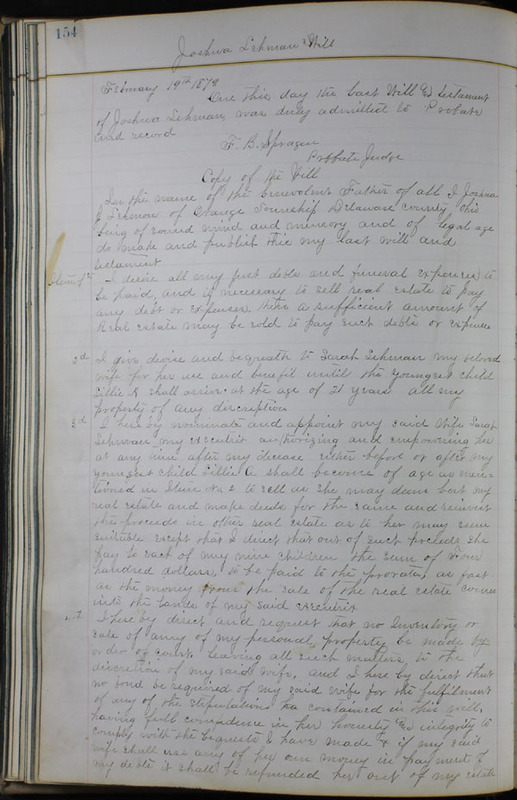 154
Joshua Lehman Will
February 19th 1879
One this day the Last Will & testament
of Joshua Lehman was duly admitted to Probate
and record
F. B. Sprague
Probate Judge
Copy of the Will
In the name of the benevolent Father of all I Joshua
Lehman of Orange Township Delaware county Ohio
being of sound mind and memory and of legal age
do make and publish this my last will and
testament
Item 1st I desire all my just debts and funeral expenses to
be paid, and if necessary to sell real estate to pay
any debt or expenses then a sufficient amount of
Real estate may be sold to pay such debts or expense
2d I give devise and bequeath to Sarah Lehman my beloved
wife for her use and benefit until the youngest child
Lillie A shall arrive at the age of 21 years all my
property of any discription
3d I here by nominate and appoint my said wife Sarah
Lehman my executrix authorizing and empowering her
at any time after my decease either before or after my
youngest child Lillie A shall become of age as men-
tioned in Item No 2 to sell as she may deem best my
real estate and make deeds for the same and reinvest
the proceeds in other real estate as to her may seem
suitable except that I direct that out of such proceeds she
pay to each of my nine children the sum of Four
hundred dollars, to be paid to the prorata, as fast
as the money from the sale of the real estate comes
into the hands of my said executrix
4th I here by direct and request that no Inventory or
sale of any of my personal property be made by
order of court leaving all such matters to the
discretion of my said wife, and I here by direct that
no bond be required of my said wife for the fulfillment
of any of the stipulations contained in this will,
having full confidence in her honesty & integrity to
comply with the bequests I have made & if my said
wife shall use any of her own money in payment of
my debts it shall be refunded her out of my estate